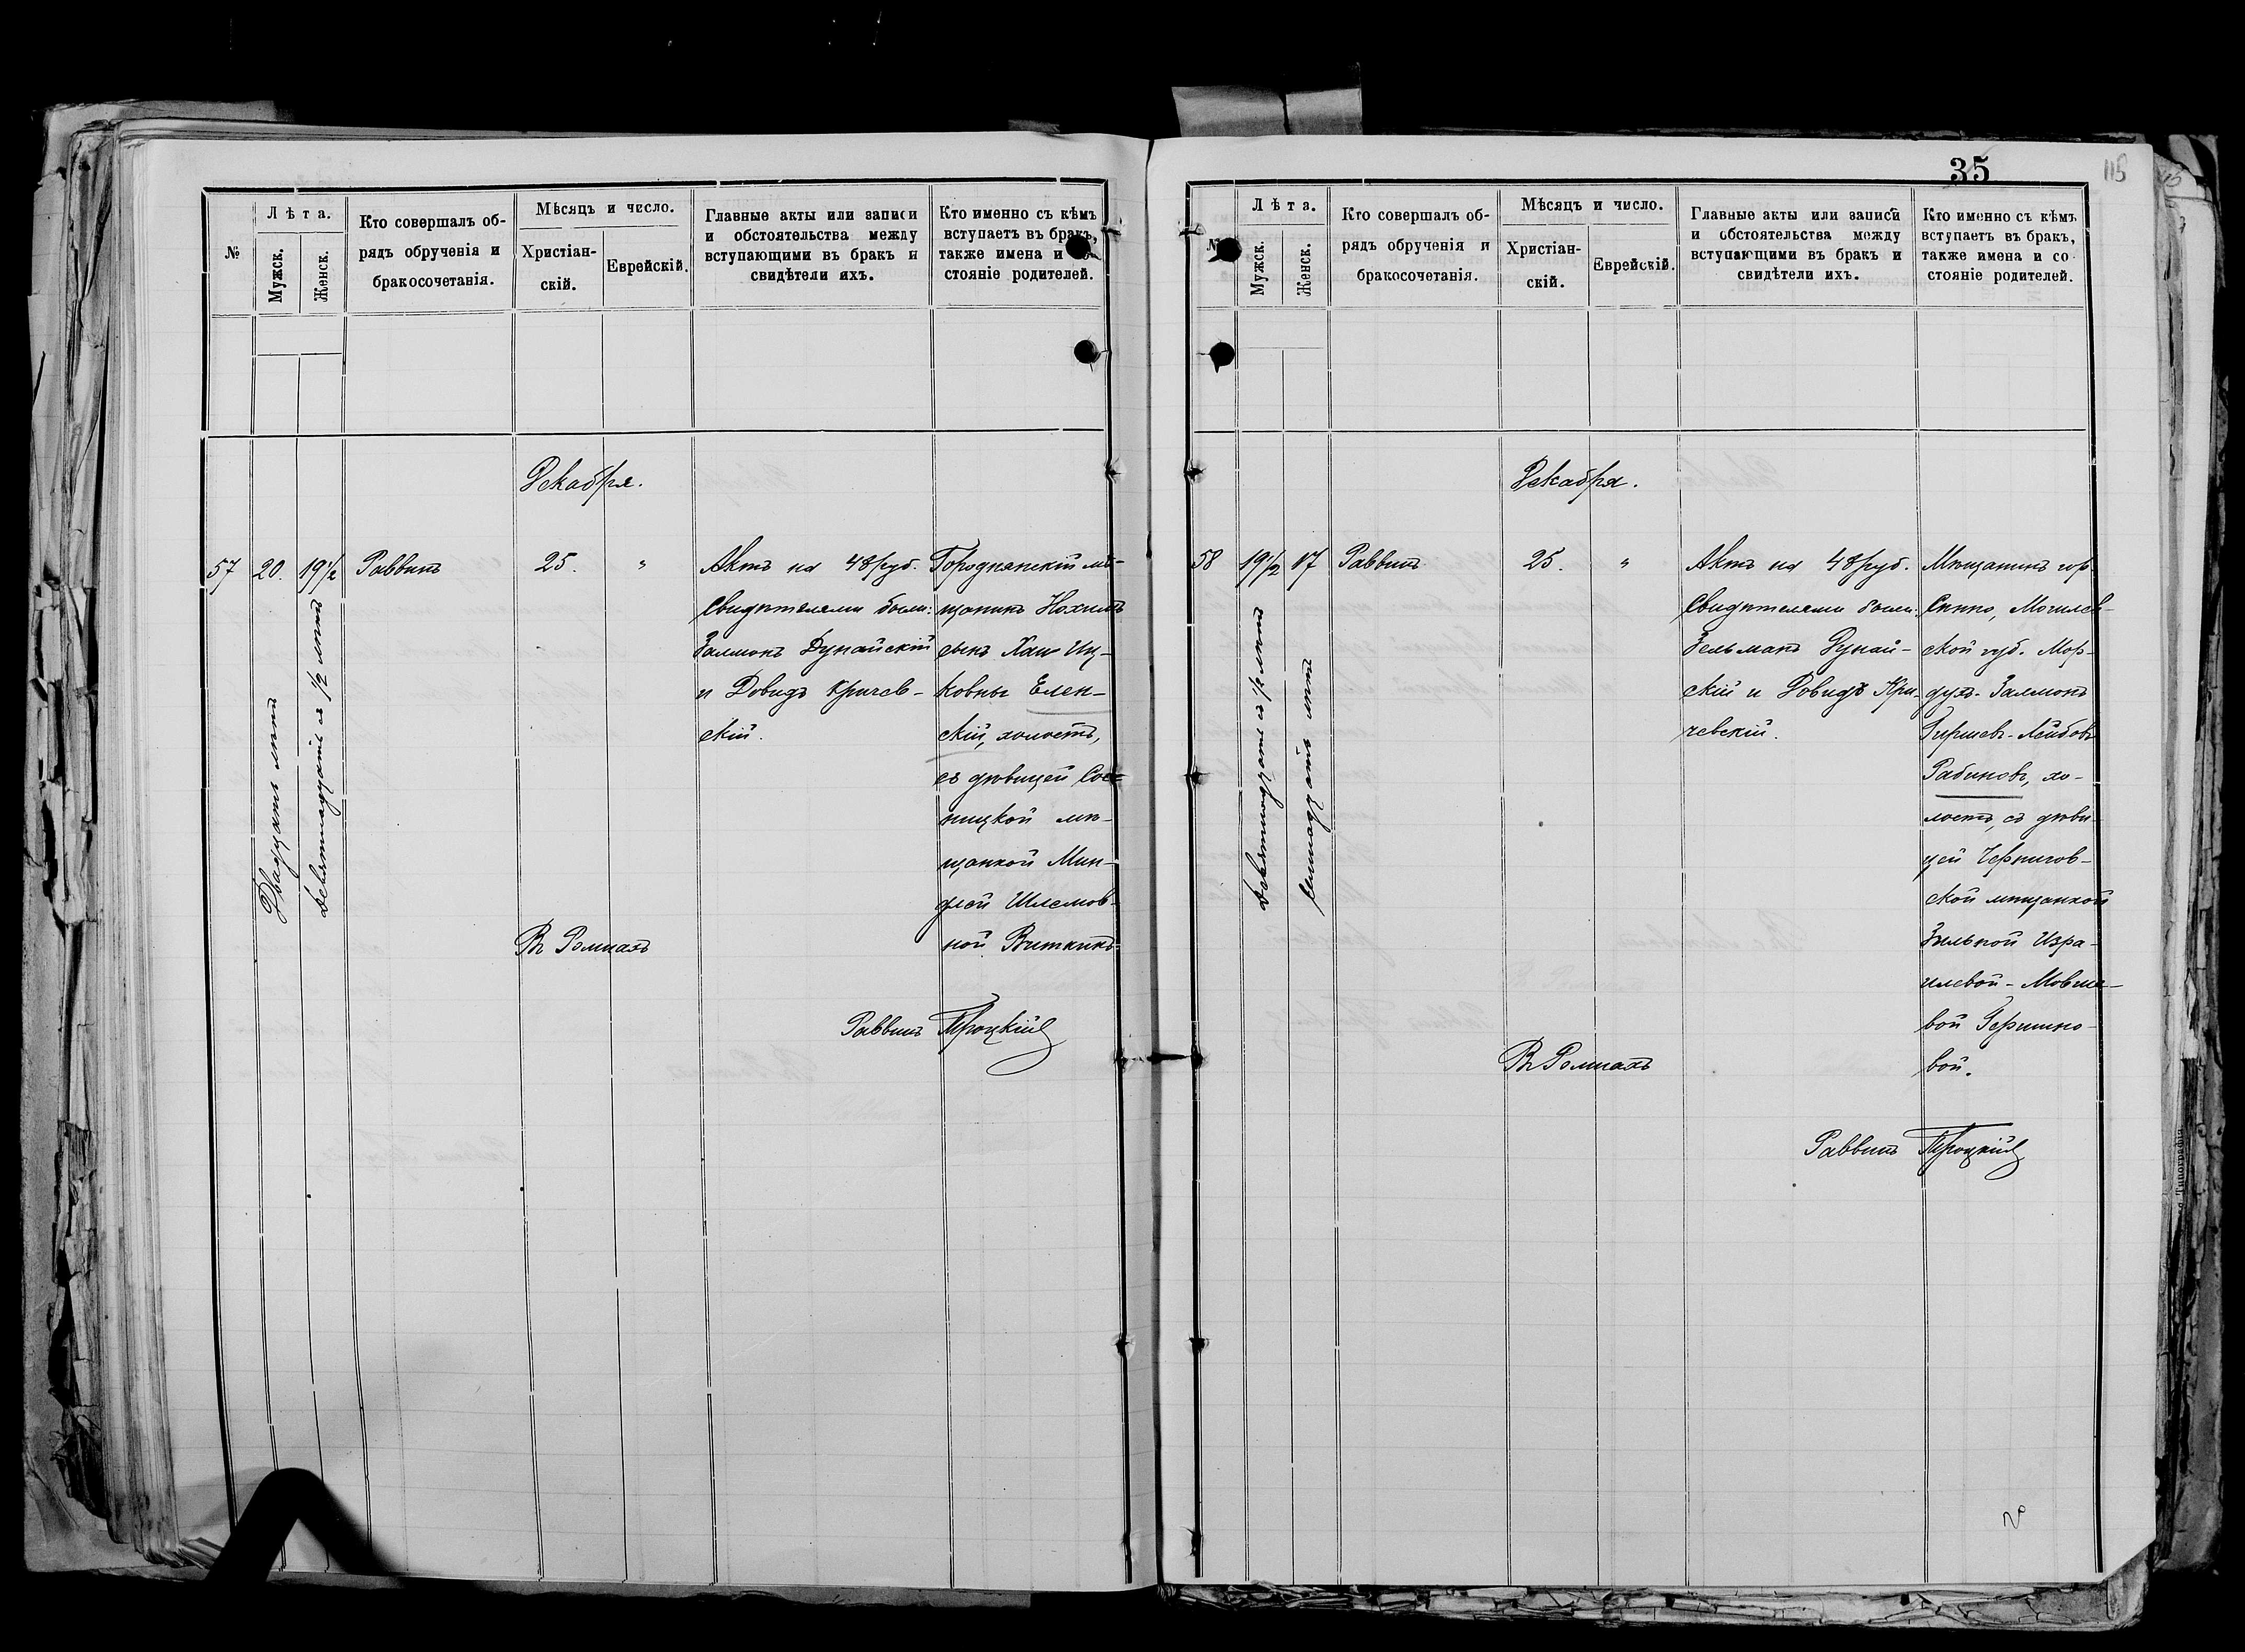 №
Лѣта.
Мужск.
Женск.
Кто совершалъ об-
рядъ обрученія и
бракосочетанія.
Мѣсяцъ и число.
Христіан-
скій.
Еврейскій.
Главные акты или записи
и обстоятельства между
вступающими въ бракъ и
свидѣтели ихъ.
Кто именно съ кѣмъ
вступаетъ въ бракъ,
также имена и
стояніе родителей.
Декабря.
57
20.
Двадцать лѣтъ
19½
Девятнадцать с ½ лѣтъ
Раввинъ
25.
"
Актъ на 48 руб.
Свидѣтелями были:
Залмонъ Дунайскій
и Довидъ Кричев-
скій.
Городнянскій мѣ-
щанинъ Нохимъ
сынъ Хаи Иц-
ковны Елен-
скій, холостъ,
съ дѣвицей Сос-
ницкой мѣ-
щанкой Мин-
длей Шлемов-
ной Виткинъ
Въ Ромнахъ
Раввинъ Троцкій
35
115
№
Лѣта.
Мужск.
Женск.
Кто совершалъ об-
рядъ обрученія и
бракосочетанія.
Мѣсяцъ и число.
Христіан-
скій.
Еврейскій.
Главные акты или записи
и обстоятельства между
вступающими въ бракъ и
свидѣтели ихъ.
Кто именно съ кѣмъ
вступаетъ въ бракъ,
также имена и со
стояніе родителей.
Декабря.
58
19½
Девятнадцать с ½ лѣтъ
17
Семнадцать лѣтъ
Раввинъ
25.
"
Актъ на 48 руб.
Свидѣтелями были:
Зельманъ Дунай-
скій и Довидъ Кри-
чевскій.
Мѣщанинъ гор.
Сѣнно, Могилев-
ской губ. Мор-
духъ-Залмонъ
Гиршев-Лейбовъ
Рабиновъ, хо-
лостъ, съ дѣви-
цей Чернигов-
ской мѣщанкой
Зельной Изра-
илевой-Мовше-
вой Гершно-
вой.
Въ Ромнахъ
Раввинъ Троцкій
Типографія